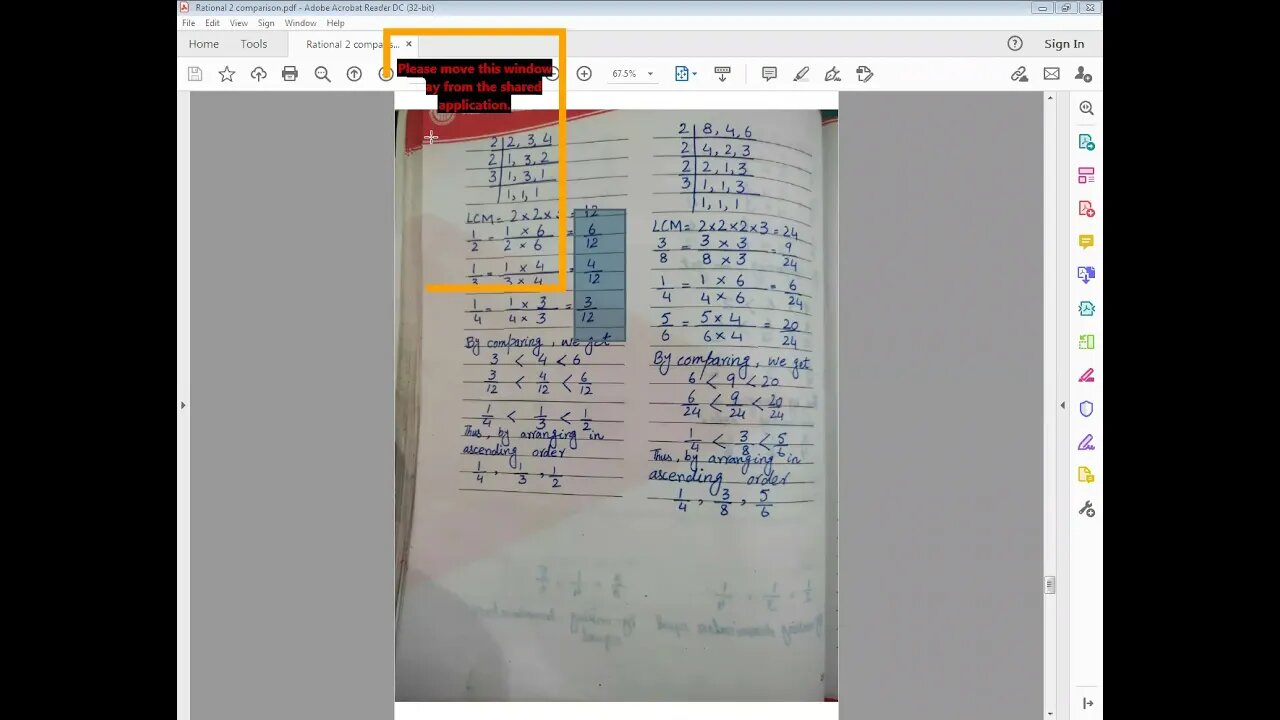 Rational 2 comparison.pdf - Adobe Acrobat Reader DC (32-bit)
File Edit View Sign Window Help
Home Tools Rational 2 comparis... × Sign In
67.5%
Please move this window
ay from the shared
application.
2 | 2, 3, 4
2 | 1, 3, 2
3 | 1, 3, 1
| 1, 1, 1
LCM = 2 × 2 × = 12
1/2 = 1 × 6 / 2 × 6 = 6/12
1/3 = 1 × 4 / 3 × 4 = 4/12
1/4 = 1 × 3 / 4 × 3 = 3/12
By comparing, we get
3 < 4 < 6
3/12 < 4/12 < 6/12
1/4 < 1/3 < 1/2
Thus, by arranging in
ascending order
1/4, 1/3, 1/2
2 | 8, 4, 6
2 | 4, 2, 3
2 | 2, 1, 3
3 | 1, 1, 3
| 1, 1, 1
LCM = 2×2×2×3 = 24
3/8 = 3 × 3 / 8 × 3 = 9/24
1/4 = 1 × 6 / 4 × 6 = 6/24
5/6 = 5 × 4 / 6 × 4 = 20/24
By comparing, we get
6 < 9 < 20
6/24 < 9/24 < 20/24
1/4 < 3/8 < 5/6
Thus, by arranging in
ascending order
1/4, 3/8, 5/6